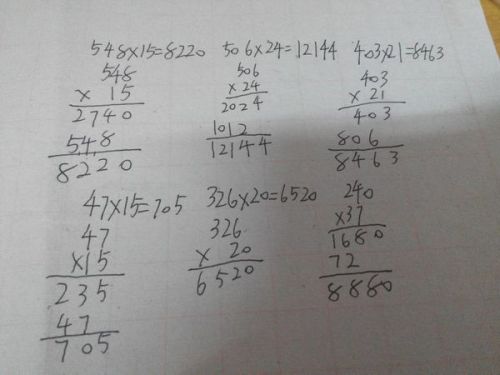 548×15=8220 506×24=12144 403×21=8463
548
× 15
2740
548
8220
506
× 24
2024
1012
12144
403
× 21
403
806
8463
47×15=705 326×20=6520
47
×15
235
47
705
326
× 20
6520
240
×37
1680
72
8880